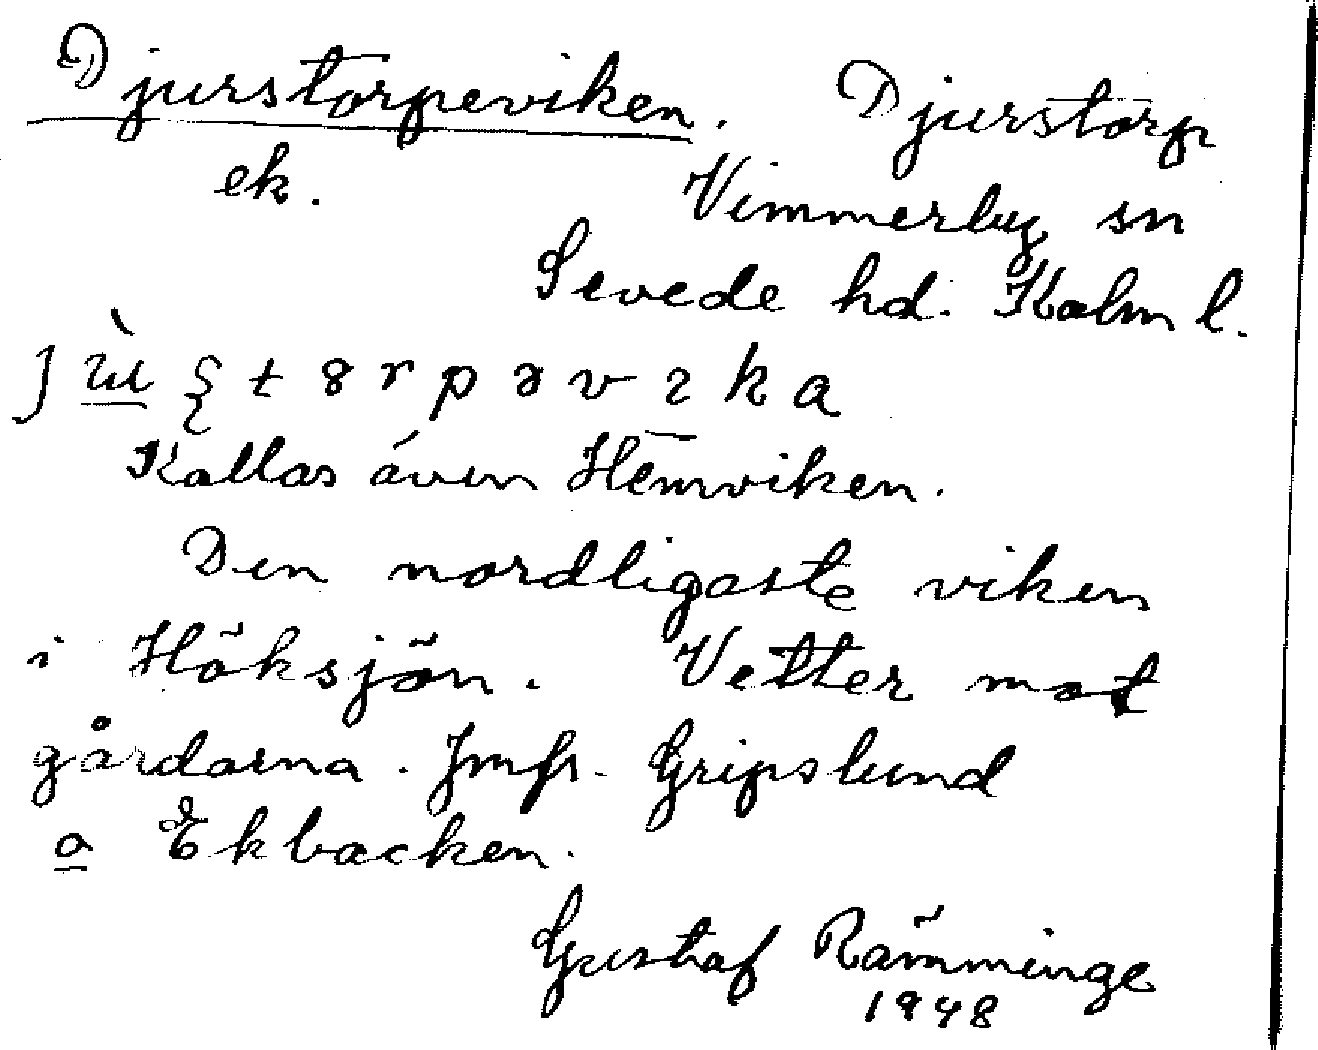 Djurstorpeviken. Djurstorp
ek. Vimmerby sn
Sevede hd. Kalm l.
Kallas även Hemviken.
Den nordligaste viken
i Höksjön. Vetter mot
gårdarna. Jmfr. Gripslund
o Ekbacken.
Gustaf Rämminge
1948